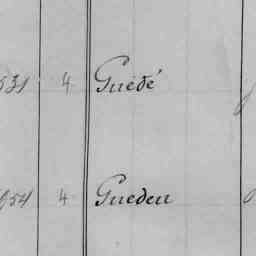 531 4 Guédé
954 4 Gueden